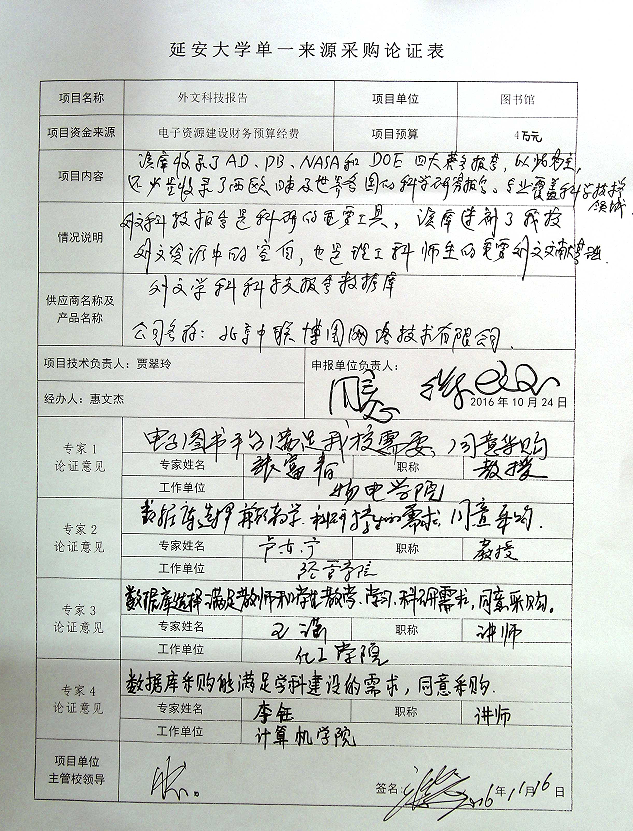 延安大学单一来源采购论证表
项目名称 外文科技报告 项目单位 图书馆
项目资金来源 电子资源建设财务预算经费 项目预算 4万元
项目内容 该库收录了AD、PB、NASA和DOE四大英文报告，以此为主，
还少量收录了西欧、日本及世界各国的科学研究报告。专业覆盖科学技术
领域
情况说明 外文科技报告是科研的重要工具，该库达到了我校
外文资源中的空白，也是理工科师生的重要外文文献
供应商名称及
产品名称
外文学科科技报告数据库
公司名称：北京中联博图网络技术有限公司
项目技术负责人：贾翠玲 申报单位负责人：
经办人：惠文杰 2016年10月24日
专家1
论证意见
电子图书 满足我校需要，同意采购
专家姓名 张富 职称 教授
工作单位 物电学院
专家2
论证意见
数据库选择 教学、科研 的需求，同意采购.
专家姓名 职称 教授
工作单位 经管学院
专家3
论证意见
数据库选择满足教师和学生教学、学习、科研需求，同意采购。
专家姓名 王 职称 讲师
工作单位 化工学院
专家4
论证意见
数据库采购能满足学科建设的需求，同意采购.
专家姓名 李钰 职称 讲师
工作单位 计算机学院
项目单位
主管校领导
签名： 2016年11月16日